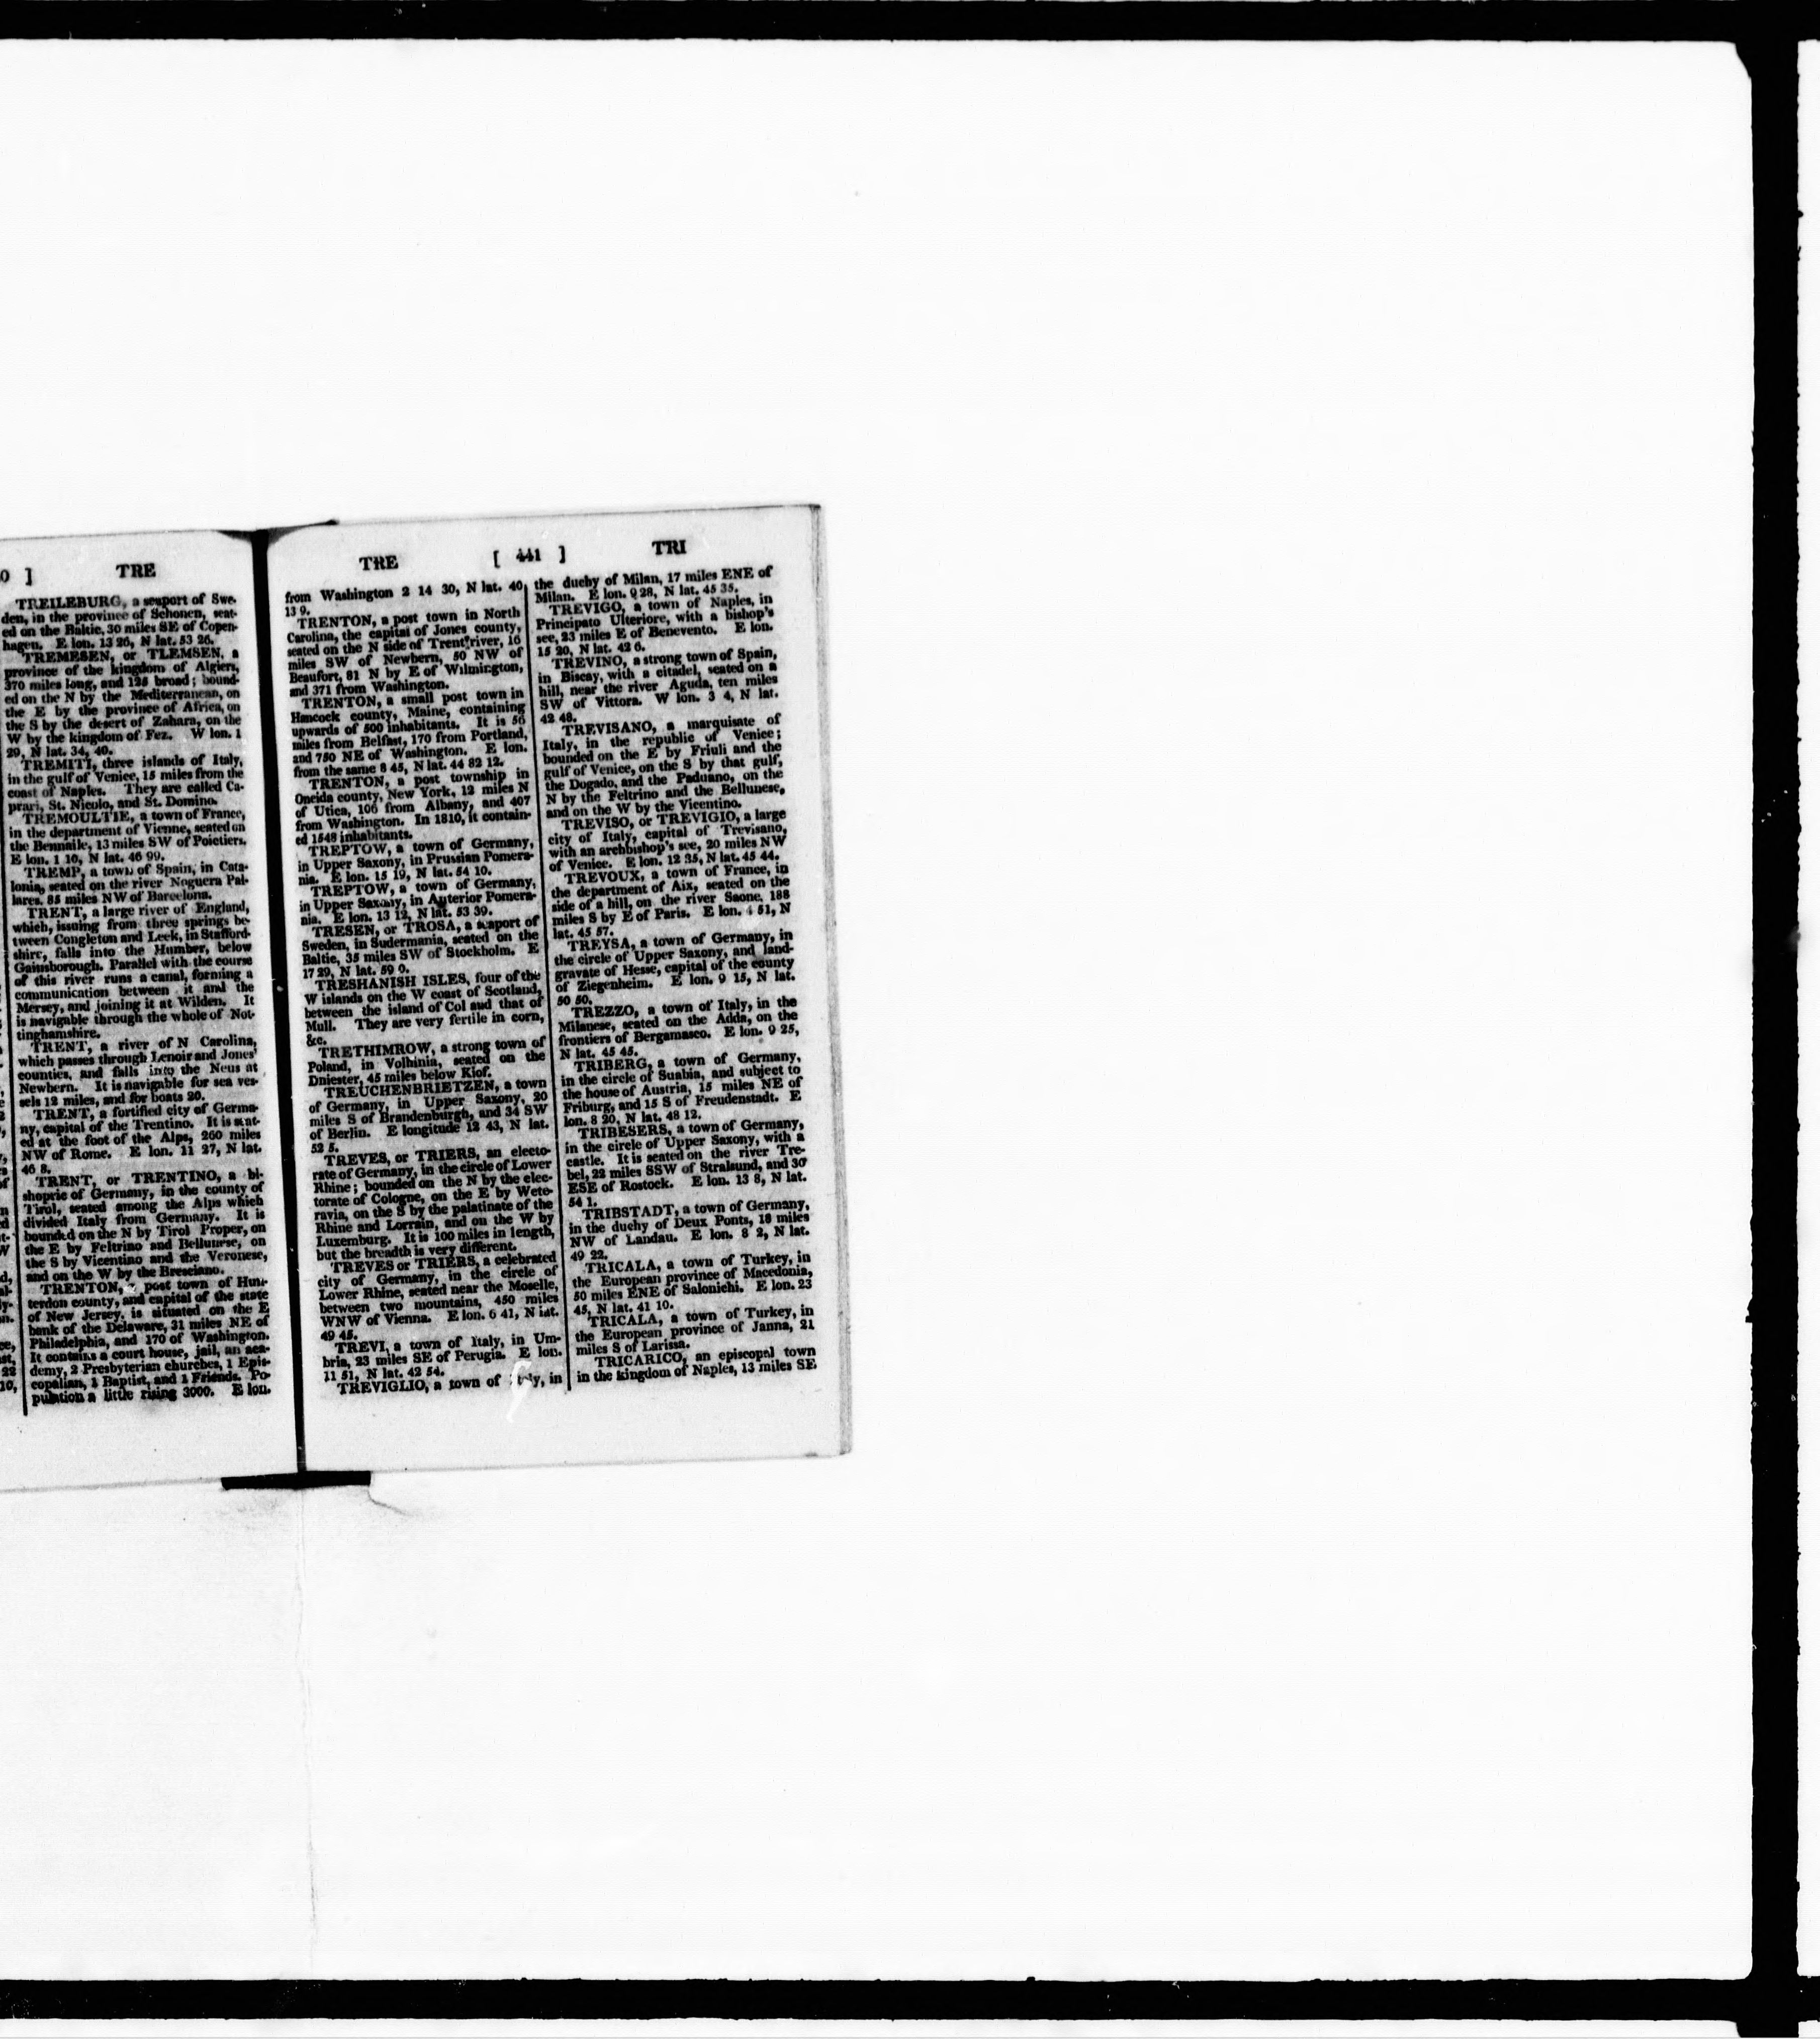 0 ] TRE
TREILEBURG, a seaport of Swe-
den, in the province of Schonen, seat-
ed on the Baltic, 30 miles SE of Copen-
hagen. E lon. 13 26, N lat. 53 26.
TREMESEN, or TLEMSEN, a
province of the kingdom of Algiers,
370 miles long, and 125 broad; bound-
ed on the N by the Mediterranean, on
the E by the province of Africa, on
the S by the desert of Zahara, on the
W by the kingdom of Fez. W lon. 1
29, N lat. 34, 40.
TREMITI, three islands of Italy,
in the gulf of Venice, 15 miles from the
coast of Naples. They are called Ca-
prari, St. Nicolo, and St. Domino.
TREMOULTIE, a town of France,
in the department of Vienne, seated on
the Bennaile, 13 miles SW of Poictiers.
E lon. 1 16, N lat. 46 99.
TREMP, a town of Spain, in Cata-
lonia, seated on the river Noguera Pal-
lares, 85 miles NW of Barcelona.
TRENT, a large river of England,
which, issuing from three springs be-
tween Congleton and Leek, in Stafford-
shire, falls into the Humber, below
Gainsborough. Parallel with the course
of this river runs a canal, forming a
communication between it and the
Mersey, and joining it at Wilden. It
is navigable through the whole of Not-
tinghamshire.
TRENT, a river of N Carolina,
which passes through Lenoir and Jones'
counties, and falls into the Neus at
Newbern. It is navigable for sea ves-
sels 12 miles, and for boats 20.
TRENT, a fortified city of Germa-
ny, capital of the Trentino. It is seat-
ed at the foot of the Alps, 260 miles
NW of Rome. E lon. 11 27, N lat.
46 8.
TRENT, or TRENTINO, a bi-
shopric of Germany, in the county of
Tirol, seated among the Alps which
divided Italy from Germany. It is
bounded on the N by Tirol Proper, on
the E by Feltrino and Bellunese, on
the S by Vicentino and the Veronese,
and on the W by the Bresciano.
TRENTON, a post town of Hun-
terdon county, and capital of the state
of New Jersey, is situated on the E
bank of the Delaware, 31 miles NE of
Philadelphia, and 170 of Washington.
It contains a court house, jail, an aca-
demy, 2 Presbyterian churches, 1 Epis-
copalian, 1 Baptist, and 1 Friends. Po-
pulation a little rising 3000. E lon.
TRE [ 441 ] TRI
from Washington 2 14 30, N lat. 40
13 9.
TRENTON, a post town in North
Carolina, the capital of Jones county,
seated on the N side of Trent river, 16
miles SW of Newbern, 50 NW of
Beaufort, 81 N by E of Wilmington,
and 371 from Washington.
TRENTON, a small post town in
Hancock county, Maine, containing
upwards of 500 inhabitants. It is 56
miles from Belfast, 170 from Portland,
and 750 NE of Washington. E lon.
from the same 8 45, N lat. 44 82 12.
TRENTON, a post township in
Oneida county, New York, 12 miles N
of Utica, 106 from Albany, and 407
from Washington. In 1810, it contain-
ed 1548 inhabitants.
TREPTOW, a town of Germany,
in Upper Saxony, in Prussian Pomera-
nia. E lon. 15 19, N lat. 54 10.
TREPTOW, a town of Germany,
in Upper Saxony, in Anterior Pomera-
nia. E lon. 13 12, N lat. 53 39.
TRESEN, or TROSA, a seaport of
Sweden, in Sudermania, seated on the
Baltic, 35 miles SW of Stockholm. E
17 29, N lat. 59 0.
TRESHANISH ISLES, four of the
W islands on the W coast of Scotland,
between the island of Col and that of
Mull. They are very fertile in corn,
&c.
TRETHIMROW, a strong town of
Poland, in Volhinia, seated on the
Dniester, 45 miles below Kiof.
TREUCHENBRIETZEN, a town
of Germany, in Upper Saxony, 20
miles S of Brandenburgh, and 34 SW
of Berlin. E longitude 12 43, N lat.
52 5.
TREVES, or TRIERS, an electo-
rate of Germany, in the circle of Lower
Rhine; bounded on the N by the elec-
torate of Cologne, on the E by Wete-
ravia, on the S by the palatinate of the
Rhine and Lorrain, and on the W by
Luxemburg. It is 100 miles in length,
but the breadth is very different.
TREVES or TRIERS, a celebrated
city of Germany, in the circle of
Lower Rhine, seated near the Moselle,
between two mountains, 450 miles
WNW of Vienna. E lon. 6 41, N lat.
49 45.
TREVI, a town of Italy, in Um-
bria, 23 miles SE of Perugia. E lon.
11 51, N lat. 42 54.
TREVIGLIO, a town of Italy, in
the duchy of Milan, 17 miles ENE of
Milan. E lon. 9 28, N lat. 45 35.
TREVIGO, a town of Naples, in
Principato Ulteriore, with a bishop's
see, 23 miles E of Benevento. E lon.
15 20, N lat. 42 6.
TREVINO, a strong town of Spain,
in Biscay, with a citadel, seated on a
hill, near the river Aguda, ten miles
SW of Vittora. W lon. 3 4, N lat.
42 48.
TREVISANO, a marquisate of
Italy, in the republic of Venice;
bounded on the E by Friuli and the
gulf of Venice, on the S by that gulf,
the Dogado, and the Paduano, on the
N by the Feltrino and the Bellunese,
and on the W by the Vicentino.
TREVISO, or TREVIGIO, a large
city of Italy, capital of Trevisano,
with an archbishop's see, 20 miles NW
of Venice. E lon. 12 35, N lat. 45 44.
TREVOUX, a town of France, in
the department of Aix, seated on the
side of a hill, on the river Saone, 188
miles S by E of Paris. E lon. 51, N
lat. 45 57.
TREYSA, a town of Germany, in
the circle of Upper Saxony, and land-
gravate of Hesse, capital of the county
of Ziegenheim. E lon. 9 15, N lat.
50 50.
TREZZO, a town of Italy, in the
Milanese, seated on the Adda, on the
frontiers of Bergamasco. E lon. 9 25,
N lat. 45 45.
TRIBERG, a town of Germany,
in the circle of Suabia, and subject to
the house of Austria, 15 miles NE of
Friburg, and 15 S of Freudenstadt. E
lon. 8 20, N lat. 48 12.
TRIBESERS, a town of Germany,
in the circle of Upper Saxony, with a
castle. It is seated on the river Tre-
bel, 22 miles SSW of Stralsund, and 30
ESE of Rostock. E lon. 13 8, N lat.
54 1.
TRIBSTADT, a town of Germany,
in the duchy of Deux Ponts, 18 miles
NW of Landau. E lon. 8 2, N lat.
49 22.
TRICALA, a town of Turkey, in
the European province of Macedonia,
50 miles ENE of Salonichi. E lon. 23
45, N lat. 41 10.
TRICALA, a town of Turkey, in
the European province of Janna, 21
miles S of Larissa.
TRICARICO, an episcopal town
in the kingdom of Naples, 13 miles SE